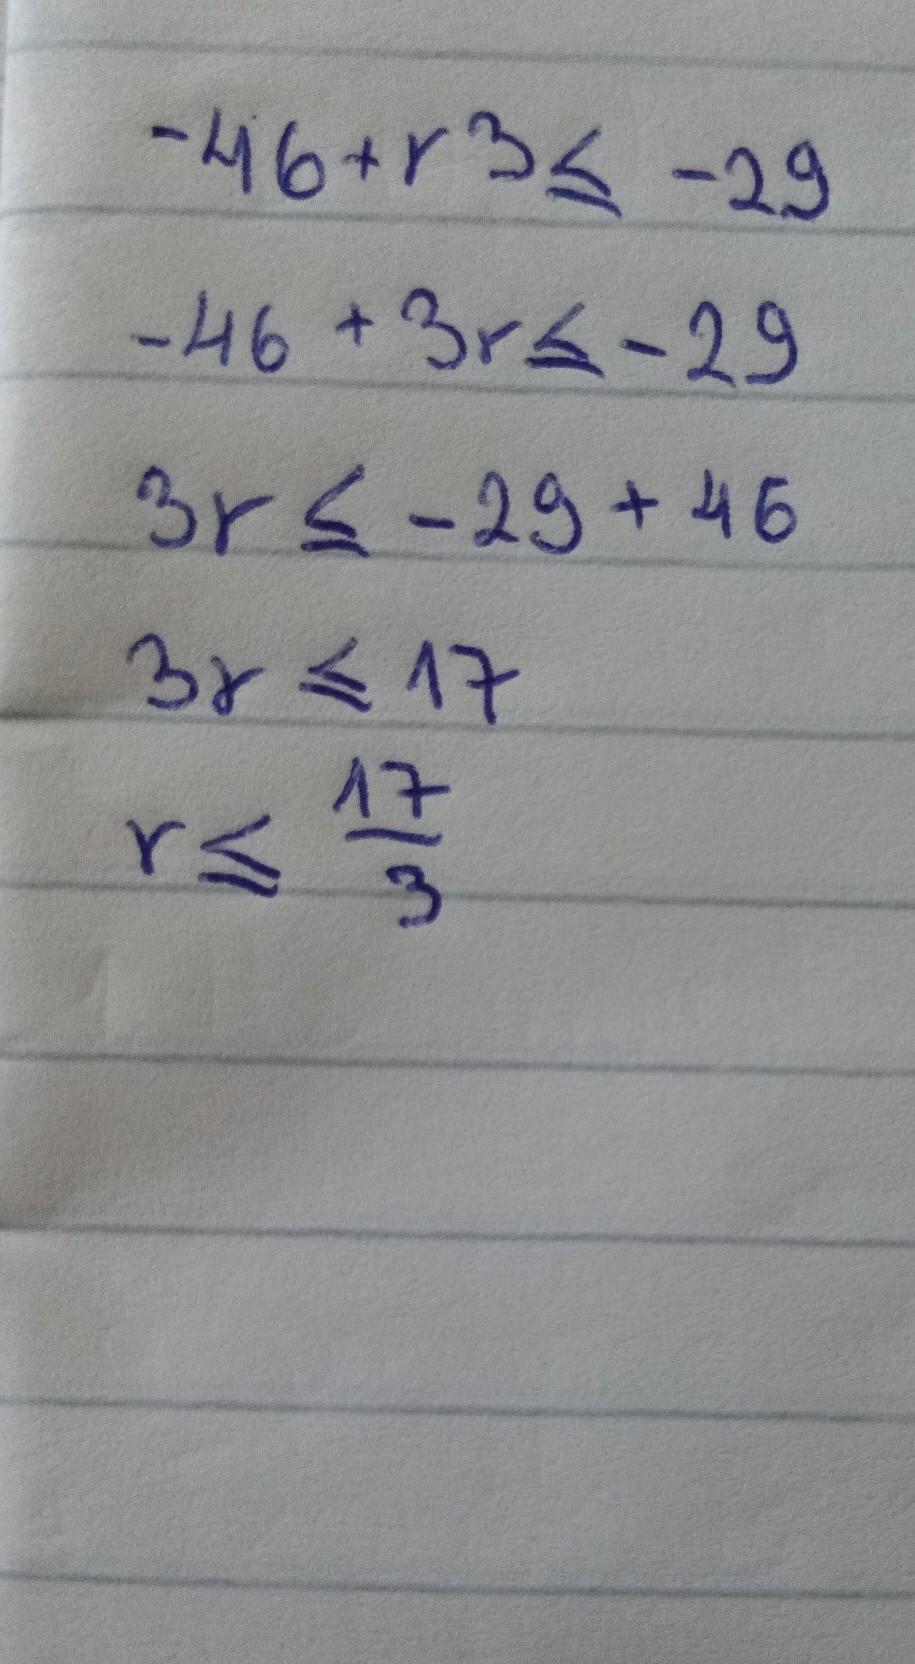 -46+r3≤ -29
-46 + 3r≤ -29
3r ≤ -29 + 46
3r ≤ 17
r≤ 17/3